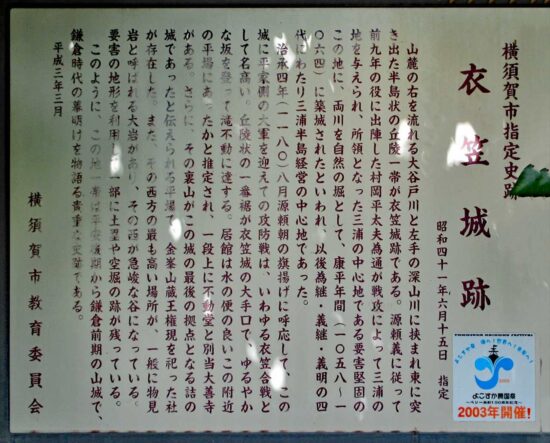 横須賀市指定史跡
衣笠城跡
昭和四十一年六月十五日 指定
山麓の右を流れる大谷戸川と左手の深山川に挟まれ東に突
き出た半島状の丘陵一帯が衣笠城跡である。源頼義に従って
前九年の役に出陣した村岡平太夫為通が戦功によって三浦の
地を与えられ、所領となった三浦の中心地である要害堅固の
この地に、両川を自然の堀として、康平年間(一〇五八~一
〇六四)に築城されたといわれ、以後為継・義継・義明の四
代にわたり三浦半島経営の中心地であった。
治承四年(一一八〇)八月源頼朝の旗揚げに呼応して、この
城に平家側の大軍を迎えての攻防戦は、いわゆる衣笠合戦と
して名高い。丘陵状の一番裾が衣笠城の大手口で、ゆるやか
な坂を登って滝不動に達する。居館は水の便の良いこの附近
の平場にあったかと推定され、一段上に不動堂と別当大善寺
がある。さらに、その裏山がこの城の最後の拠点となる詰の
城であったと伝えられる平場で、金峯山蔵王権現を祀った社
が存在した。また、その西方の最も高い場所が、一般に物見
岩と呼ばれる大岩があり、その西が急峻な谷になっている。
要害の地形を利用し、一部に土塁や空堀の跡が残っている。
このように、この地一帯は平安後期から鎌倉前期の山城で、
鎌倉時代の幕明けを物語る貴重な史跡である。
平成三年三月
横須賀市教育委員会
よこすか開国祭
2003年開催!